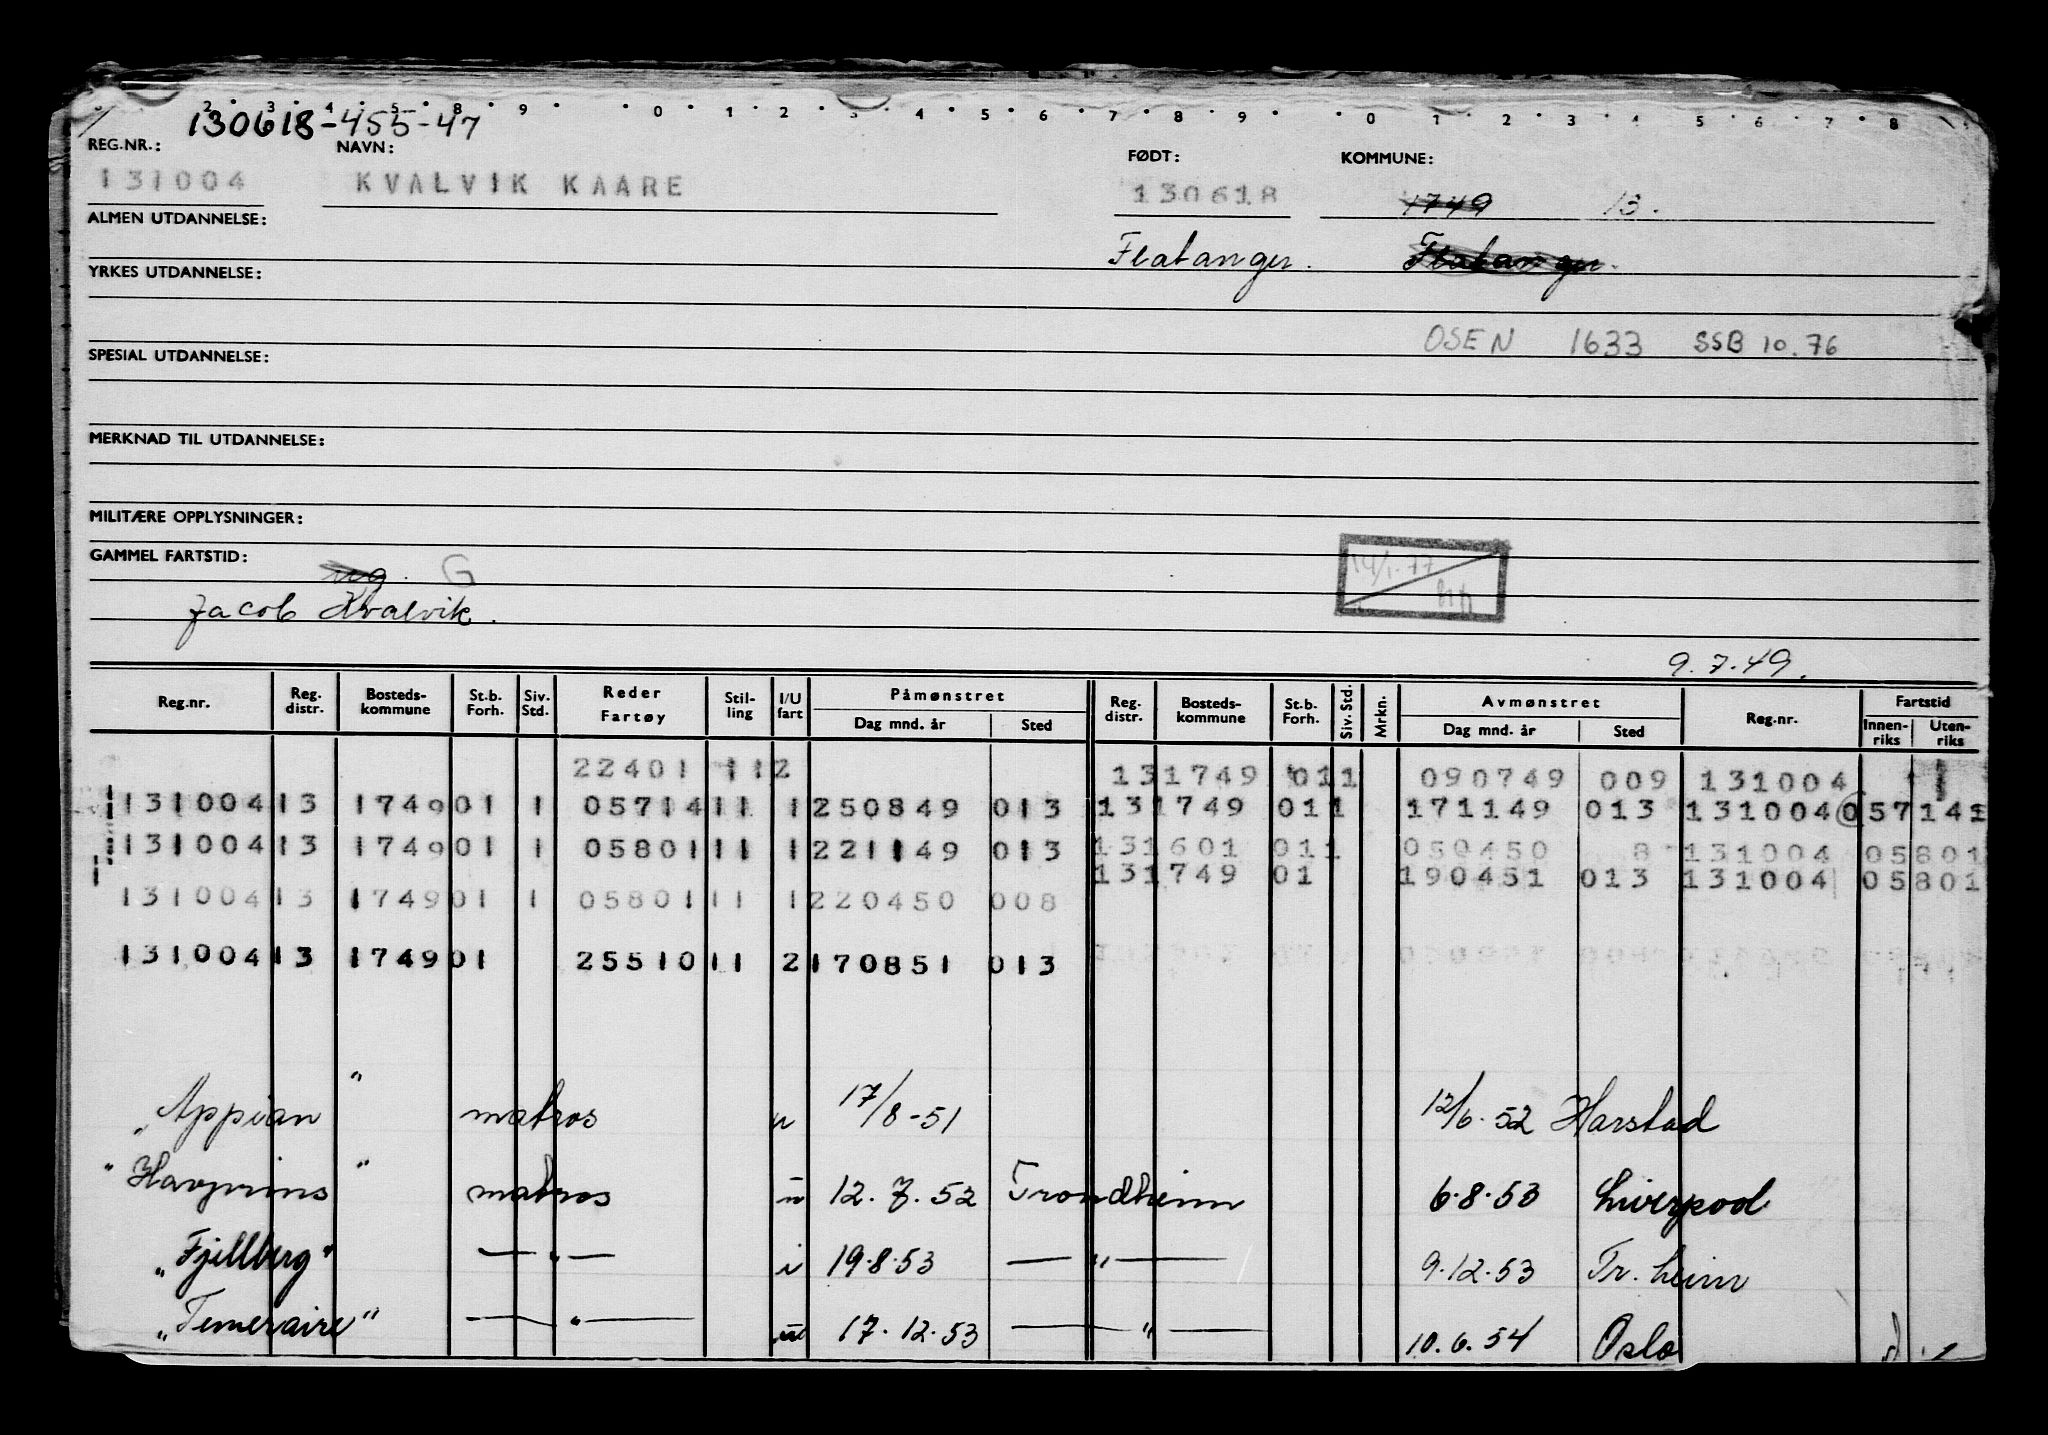 2 3 4 5 8 9 0 1 2 3 4 5 6 7 8 9 0 1 2 3 4 5 6 7 8
130618-455-47
REG.NR.: NAVN: FØDT: KOMMUNE:
131004 KVALVIK KAARE 130618 1749 13.
ALMEN UTDANNELSE:
Flatanger. Flatanger.
YRKES UTDANNELSE:
OSEN 1633 SSB 10.76
SPESIAL UTDANNELSE:
MERKNAD TIL UTDANNELSE:
MILITÆRE OPPLYSNINGER:
GAMMEL FARTSTID:
ug. G
14/1-77
Jacob Kvalvik.
9.7.49.
Reg.nr. Reg. distr. Bosteds- kommune St.b. Forh. Siv. Std. Reder Fartøy Stil- ling I/U fart Påmønstret Dag mnd. år Sted Reg. distr. Bosteds- kommune St.b. Forh. Siv. Std. Mrkn. Avmønstret Dag mnd. år Sted Reg.nr. Fartstid Innen- riks Uten- riks
22401 112 131749 011 090749 009 131004
131004 13 1749 01 1 05714 11 1 250849 013 131749 011 171149 013 131004 057141
131004 13 1749 01 1 05801 11 1 221149 013 131601 011 050450 8 131004 05801
131749 01 190451 013 131004 05801
131004 13 1749 01 1 05801 11 1 220450 008
131004 13 1749 01 25510 11 2 170851 013
"Appian" matros u 17/8-51 12/6.52 Harstad
"Havprins" matros u 12.7.52 Trondheim 6.8.53 Liverpool
"Fjellberg" — " — i 19.8.53 — " — 9.12.53 Tr.heim
"Temeraire" — " — u 17.12.53 — " — 10.6.54 Oslo